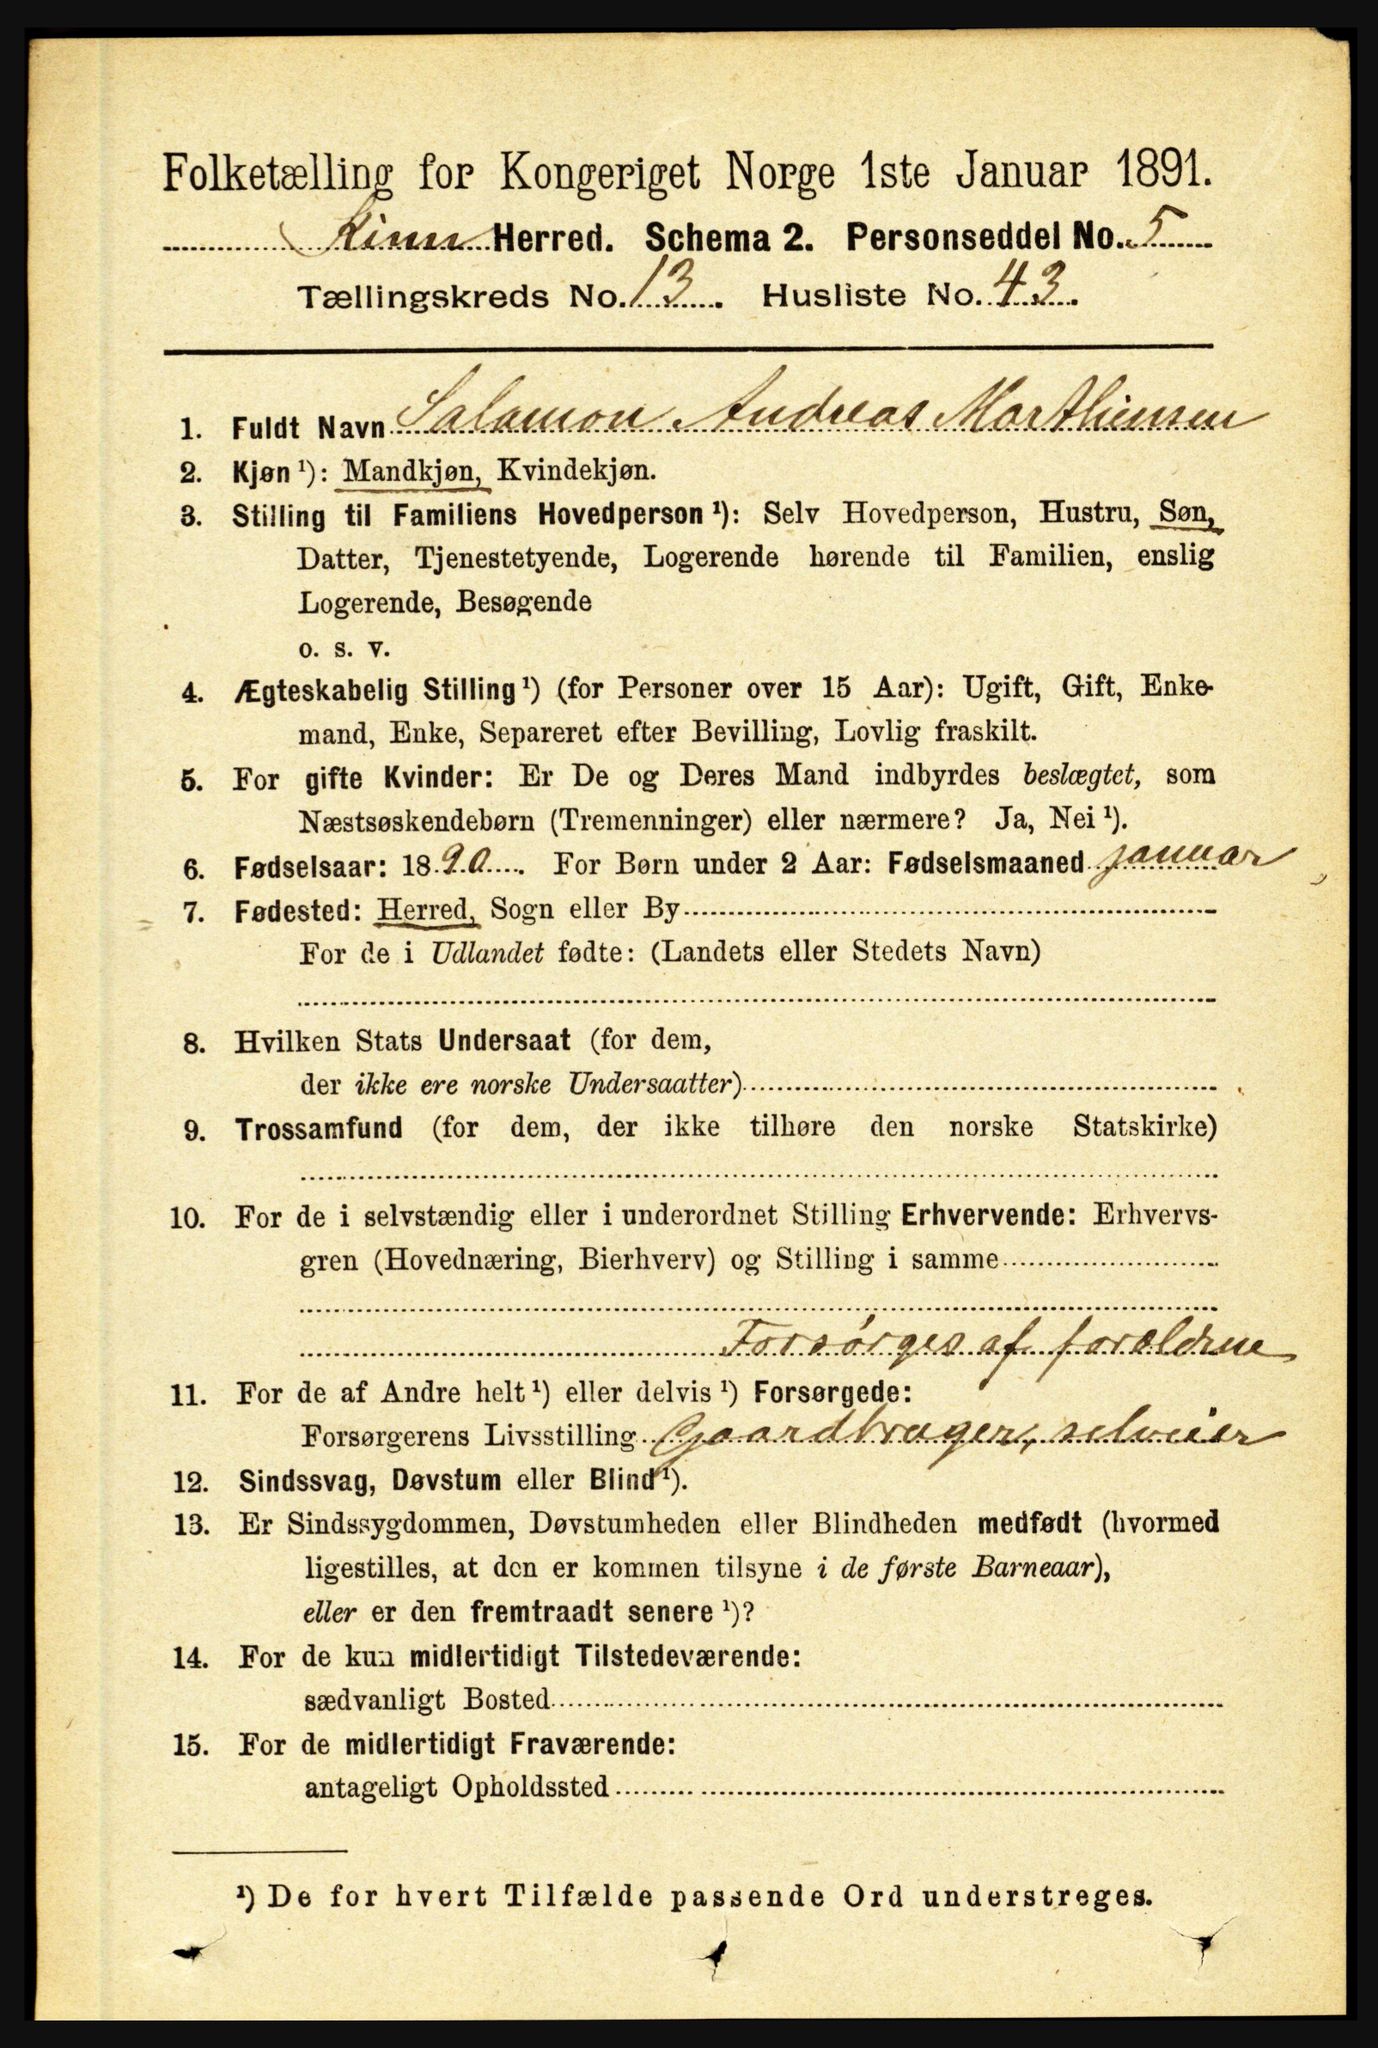 Folketælling for Kongeriget Norge 1ste Januar 1891.
Kinn Herred. Schema 2. Personseddel No. 5
Tællingskreds No. 13. Husliste No. 43.
1. Fuldt Navn Salamon Andreas Marthinsen
2. Kjøn ¹): Mandkjøn, Kvindekjøn.
3. Stilling til Familiens Hovedperson ¹): Selv Hovedperson, Hustru, Søn,
Datter, Tjenestetyende, Logerende hørende til Familien, enslig
Logerende, Besøgende
o. s. v.
4. Ægteskabelig Stilling ¹) (for Personer over 15 Aar): Ugift, Gift, Enke-
mand, Enke, Separeret efter Bevilling, Lovlig fraskilt.
5. For gifte Kvinder: Er De og Deres Mand indbyrdes beslægtet, som
Næstsøskendebørn (Tremenninger) eller nærmere? Ja, Nei ¹).
6. Fødselsaar: 1890. For Børn under 2 Aar: Fødselsmaaned januar
7. Fødested: Herred, Sogn eller By
For de i Udlandet fødte: (Landets eller Stedets Navn)
8. Hvilken Stats Undersaat (for dem,
der ikke ere norske Undersaatter)
9. Trossamfund (for dem, der ikke tilhøre den norske Statskirke)
10. For de i selvstændig eller i underordnet Stilling Erhvervende: Erhvervs-
gren (Hovednæring, Bierhverv) og Stilling i samme
Forsørges af forældrene
11. For de af Andre helt ¹) eller delvis ¹) Forsørgede:
Forsørgerens Livsstilling Gaardbruger, selveier
12. Sindssvag, Døvstum eller Blind ¹).
13. Er Sindssygdommen, Døvstumheden eller Blindheden medfødt (hvormed
ligestilles, at den er kommen tilsyne i de første Barneaar),
eller er den fremtraadt senere ¹)?
14. For de kun midlertidigt Tilstedeværende:
sædvanligt Bosted
15. For de midlertidigt Fraværende:
antageligt Opholdssted
¹) De for hvert Tilfælde passende Ord understreges.